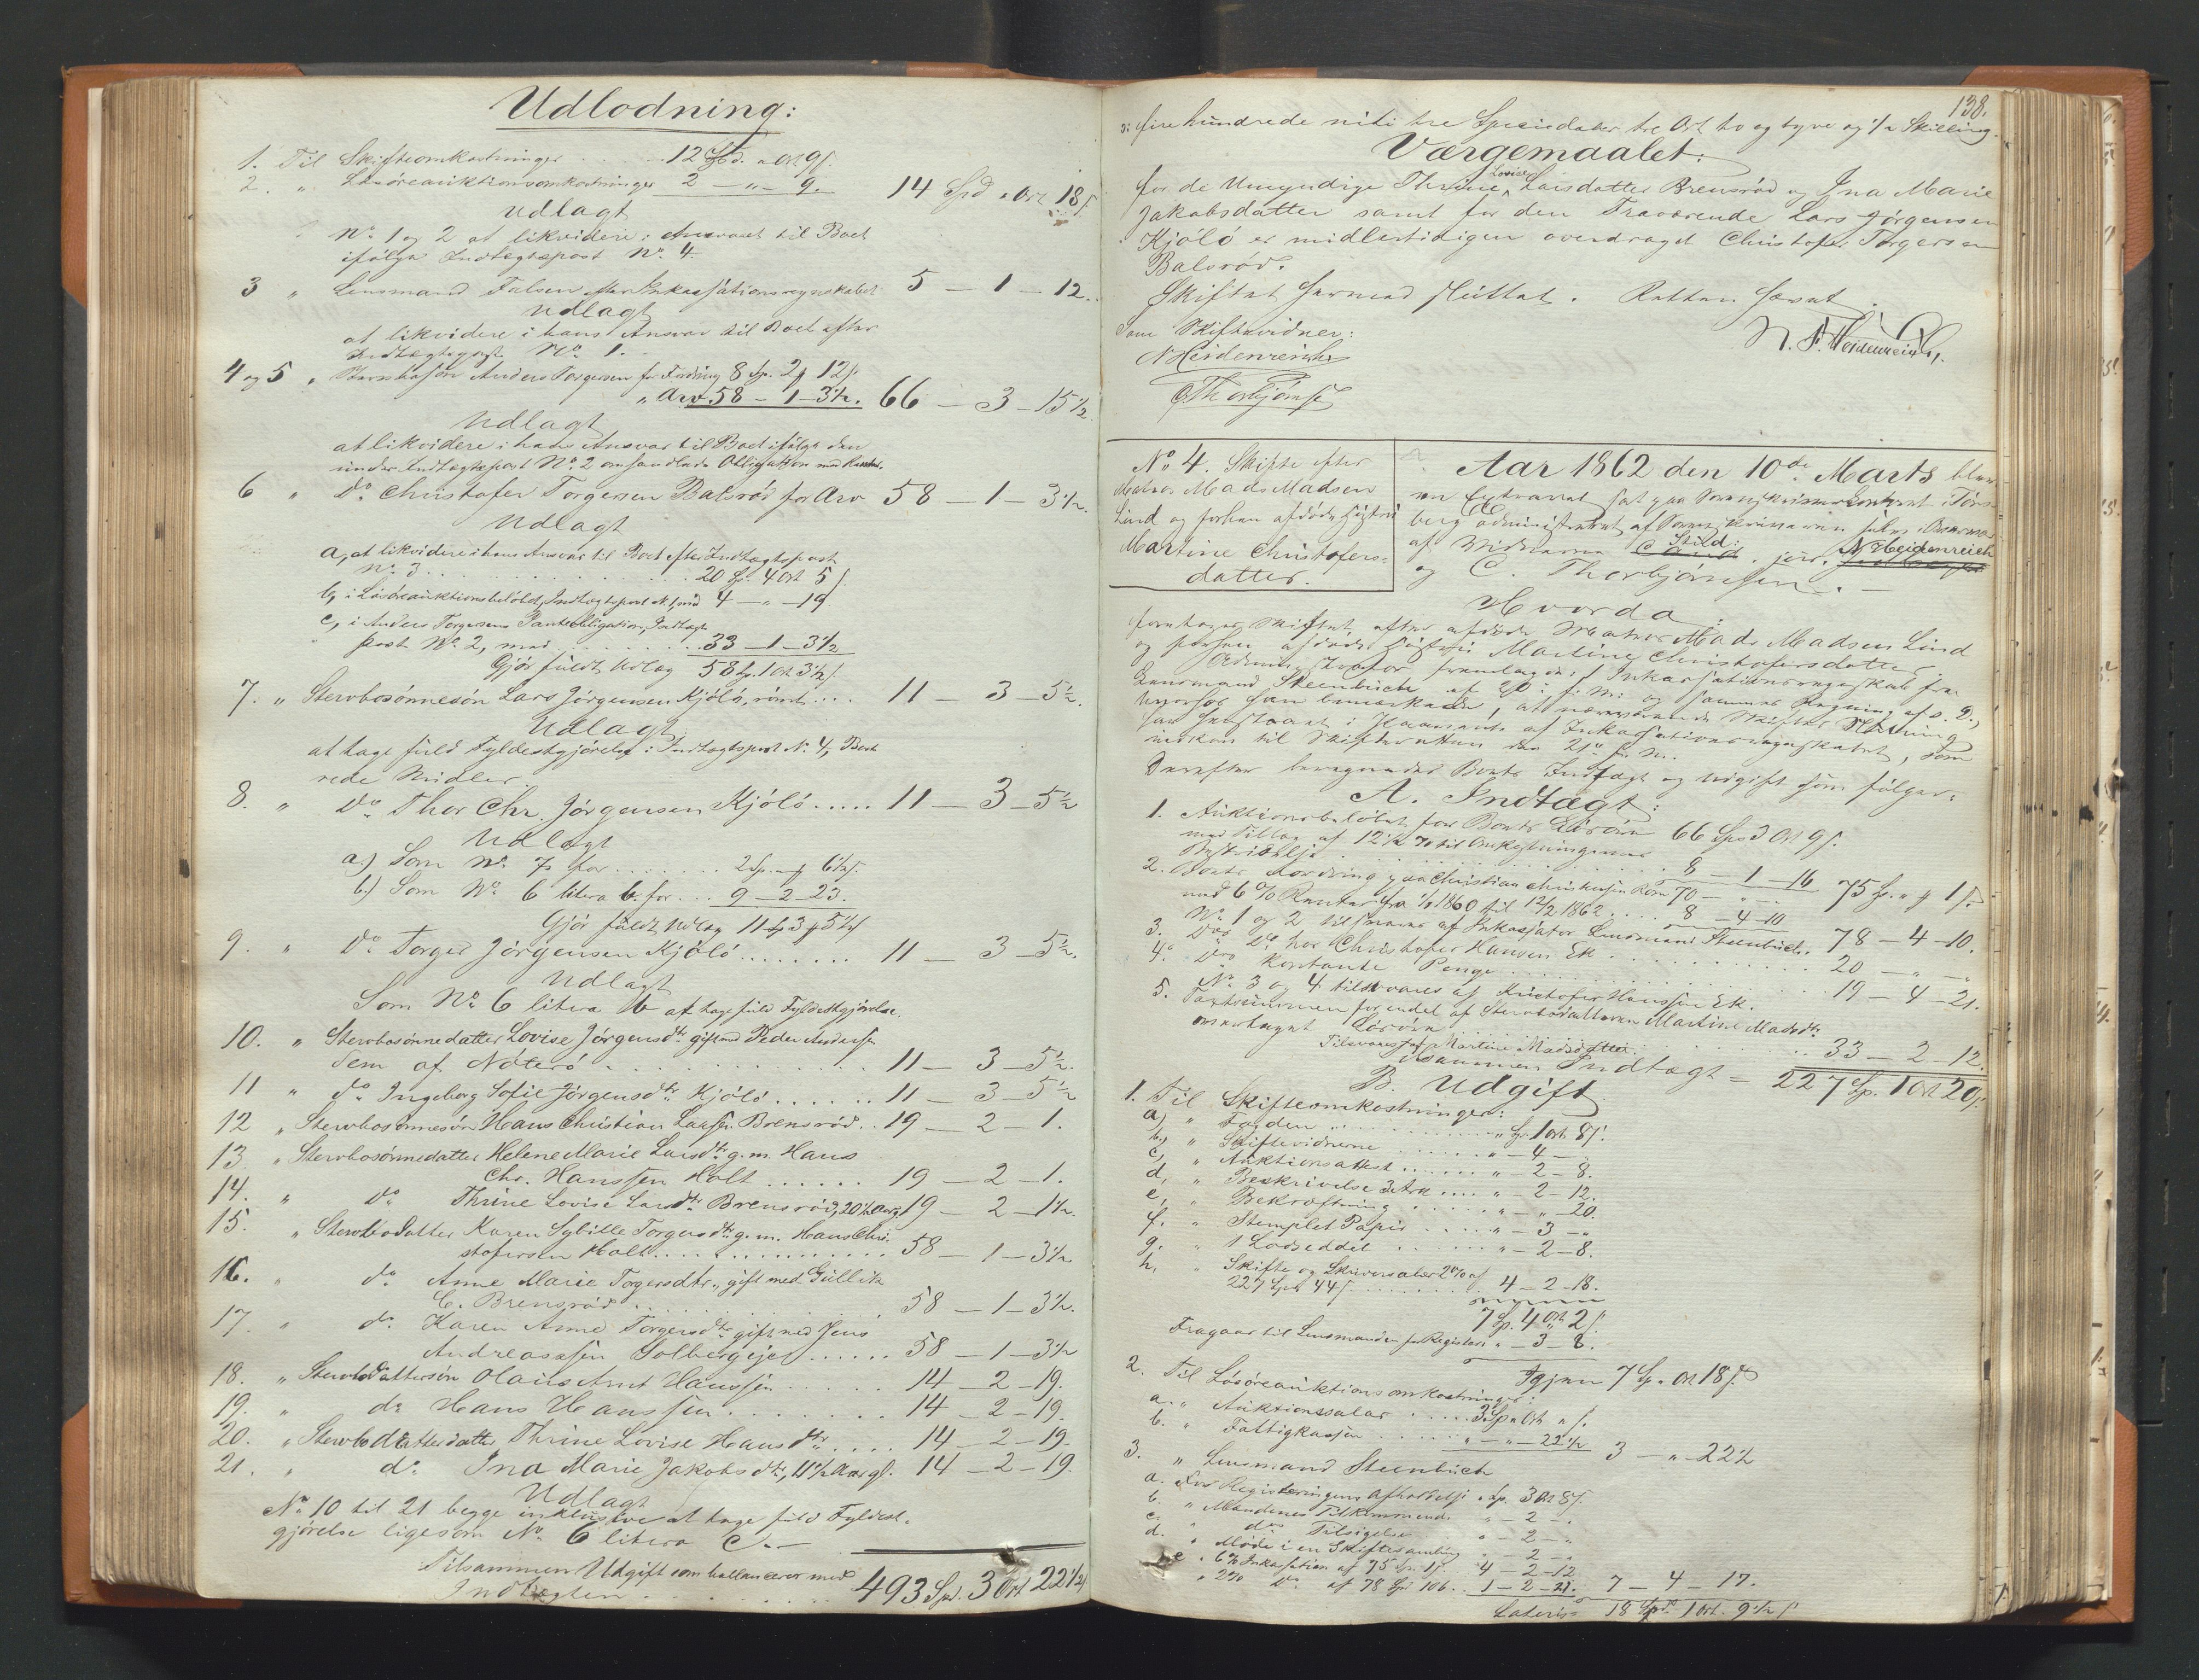 Udlodning:
1. Til Skifteomkostninger . . . . . 12 Spd. " Ort 9 s.
2. " Løsøreauktionsomkostninger 2 — " — 9. 14 Spd " Ort 18 s
Udlagt
No. 1 og 2 at likvidere i Ansvaret til Boet
ifølge Indtægtspost No. 4.
3 " Lensmand Falsen efter Inkassationsregnskabet 5 — 1 — 12.
Udlagt
at likvidere i hans Ansvar til Boet efter
Indtægtspost No. 1.
4 og 5 " Stervbosøn Anders Torgersen for Fordring 8 Sp. 2 ƒ 12 s.
" Arv 58 — 1 — 3½. 66 — 3 — 15½
Udlagt
at likvidere i hans Ansvar til Boet ifølge den
under Indtægtspost No. 2 omhandlede Obligation med Renter.
6 " Do Christofer Torgersen Balsrød for Arv 58 — 1 — 3½.
Udlagt
a, at likvidere i hans Ansvar til Boet efter Indtægtspost
No. 3 . . . . . . . . . . 20 Sp. 4 Ort 5 s
b, i Løsøreauktionsbeløbet, Indtægtspost No. 1, med 4 — " — 19
c, i Anders Torgersens Panteobligation, Indtægt
post No. 2, med . . . . . . . 33 — 1 — 3½
Gjør fuldt Udlæg 58 Sp. 1 Ort 3½ s.
7. " Stervbosønnesøn Lars Jørgensen Kjølø, rømt . . . 11 — 3 — 5½.
Udlagt
at tage fuld Fyldestgjørelse i Indtægtspost No. 4, Boets
rede Midler.
8. " Do Thor Chr. Jørgensen Kjølø . . . . . 11 — 3 — 5½
Udlagt
a.) Som No. 7 for . . . . . . . 2 Sp. " ƒ 6½ s.
b.) Som No. 6 litera b. for . . . 9 — 2 — 23.
Gjør fuldt Udlæg 11 Sp 3 ƒ 5½ s
9. " Do Torger Jørgensen Kjølø . . . . . . . . 11 — 3 — 5½.
Udlagt
Som No. 6 litera b at tage fuld Fyldestgjørelse.
10. " Stervbosønnedatter Lovise Jørgensdtr. gift med Peder Andersen
Sem af Nøterø . . . . . . . . . . . . 11 — 3 — 5½.
11 " do Ingeborg Sofie Jørgensdtr. Kjølø . . . . . . 11 — 3 — 5½
12 " Stervbosønnesøn Hans Christian Larsen Brensrød . . 19 — 2 — 1.
13. " Stervbosønnedatter Helene Marie Larsdtr. g. m. Hans
Chr. Hanssen Holt . . . . . . 19 — 2 — 1.
14. " Do Thrine Lovise Larsdtr. Brensrød, 20½ Aar gl 19 — 2 — 1½.
15. " Stervbodatter Karen Sybille Torgersdtr. g. m. Hans Chri-
stofersen Holt . . . . . . . . . . . . . 58 — 1 — 3½
16. " do Anne Marie Torgersdtr., gift med Gullik
C. Brensrød . . . . . . . . . . . . 58 — 1 — 3½.
17. " do. Karen Anne Torgersdtr. gift med Jens
Andreassen Solbergejet . . . . . . 58 — 1 — 3½
18. " Stervbodattersøn Olaus Amt Hanssen . . . . . . 14 — 2 — 19.
19. " do Hans Hanssen . . . . . . . . . 14 — 2 — 19.
20. " Stervbodatterdatter Thrine Lovise Hansdtr. . . . . 14 — 2 — 19.
21. " do. Ina Marie Jakobsdtr, 11½ Aar gl. 14 — 2 — 19.
Udlagt
No. 10 til 21 begge inklusive at tage fuld Fyldest-
gjørelse ligesom No. 6 litera c. —
Tilsammen Udgift som ballancerer med
Indtægten . . . . . . . . . 493 Spd. 3 Ort 22½ s
138.
ɔ: fire hundrede niti tre Speciedaler tre Ort to og tyve og ½ Skilling.
Værgemaalet:
for de Umyndige Thrine Lovise Larsdatter Brensrød og Ina Marie
Jakobsdatter samt for den Fraværende Lars Jørgensen
Kjølø er midlertidigen overdraget Christofer Torgersen
Balsrød.
Skiftet hermed sluttet. Retten hævet.
N. F. Heidenreich.
Som Skiftevidner:
N Heidenreich
C Thorbjørnsen
No. 4. Skifte efter
Matros Mads Madsen
Lind og forhen afdøde Hustru
Martine Christofers-
datter.
Aar 1862 den 10de Marts blev
en Extraret sat paa Sorenskriverkontoret i Töns-
berg administreret af Sorenskriveren selv, i Overvær
af Vidnerne Skild: jun. N Heidenreich
og C. Thorbjørnsen. —
Hvorda:
foretoges Skiftet efter afdøde Matros Mads Madsen Lind
og forhen afdøde Hustru Martine Christofersdatter.
Administrator fremlagde: Inkassationsregnskab fra
Lensmand Steenbuch af 20de f. M. og sammes Regning af s. D.,
hvorhos han bemærkede, at nærværende Skiftes Slutning
har henstaaet i Paavente af Inkassationsregnskabet, som
indkom til Skifteretten den 21de f. M.
Derefter beregnedes Boets Indtægt og Udgift som følger:
A. Indtægt:
1. Auktionsbeløbet for Boets Løsøre 66 Spd 3 Ort 9 s.
med Tillæg af 12½ % til Omkostningernes
Bestridelse . . . . . . . . . 8 — 1 — 16 75 Sp. " ƒ 1 s.
2. Boets Fordring paa Christian Christensen Røm 70 — " — "
med 6 % Renter fra 1/1 1860 til 12/2 1862 . . . . 8 — 4 — 10
No. 1 og 2 tilsvares af Inkassator Lensmand Steenbuch. 78 — 4 — 10.
3. Do Do hos Christofer Hansen Ek . . . . . . . . . . 20 — " — "
4. Do Kontante Penge . . . . . . . . . . . . 19 — 4 — 21.
No. 3 og 4 tilsvares af Kristofer Hanssen Ek.
5. Taxtsummen for endel af Stervbodatteren Martine Madsdtr.
overtaget Løsøre . . . . . . . . . . 33 — 2 — 12.
Tilsvares af Martine Madsdatter.
Tilsammen Indtægt = 227 Sp. 1 Ort 20 s.
B. Udgift
1. Til Skifteomkostninger:
a) " Fogden . . . . . . . . . . " Sp. 1 Ort 8 s.
b, " Skiftevidnerne . . . . . . " — 4 — "
c, " Auktionsattest . . . . . . " — 2 — 8.
d, " Beskrivelse 3 Ark . . . . " — 2 — 12.
e, " Bekræftning . . . . . . " — " — 20.
f. " Stemplet Papir . . . . . " — 3 — "
g. " 1 Lodseddel . . . . . . " — 2 — 8.
h, " Skifte og Skriversalær 2 % af
227 Spd. 44 s . . . . . . . . . 4 — 2 — 18.
7 Sp. 4 Ort 2 s.
Fragaar til Lensmanden for Registeri " — 3 — 8.
Igjen 7 Sp. " Ort 18 s.
2. Til Løsøreauktionsomkostninger:
a. " Auktionssalær . . . . . 3 Sp " Ort " s.
b. " Fattigkassen . . . . . " — " — 22½ 3 — " — 22½
3. " Lensmand Steenbuch
a. For Registreringens Afholdelse " Sp. 3 Ort 8 s.
b. " Mændenes Tilkommende " — 2 — "
c. " do Tilsigelse " — 2 — "
d. " Møde i en Skiftesamling " — 2 — "
e. " 6 % Inkassation af 75 Spd 1 s. 4 — 2 — 12
" 2 % do. af 78 Spd 106 . . 1 — 2 — 21. 7 — 4 — 17.
Lateris = 18 Spd. 1 Ort. 9½ s